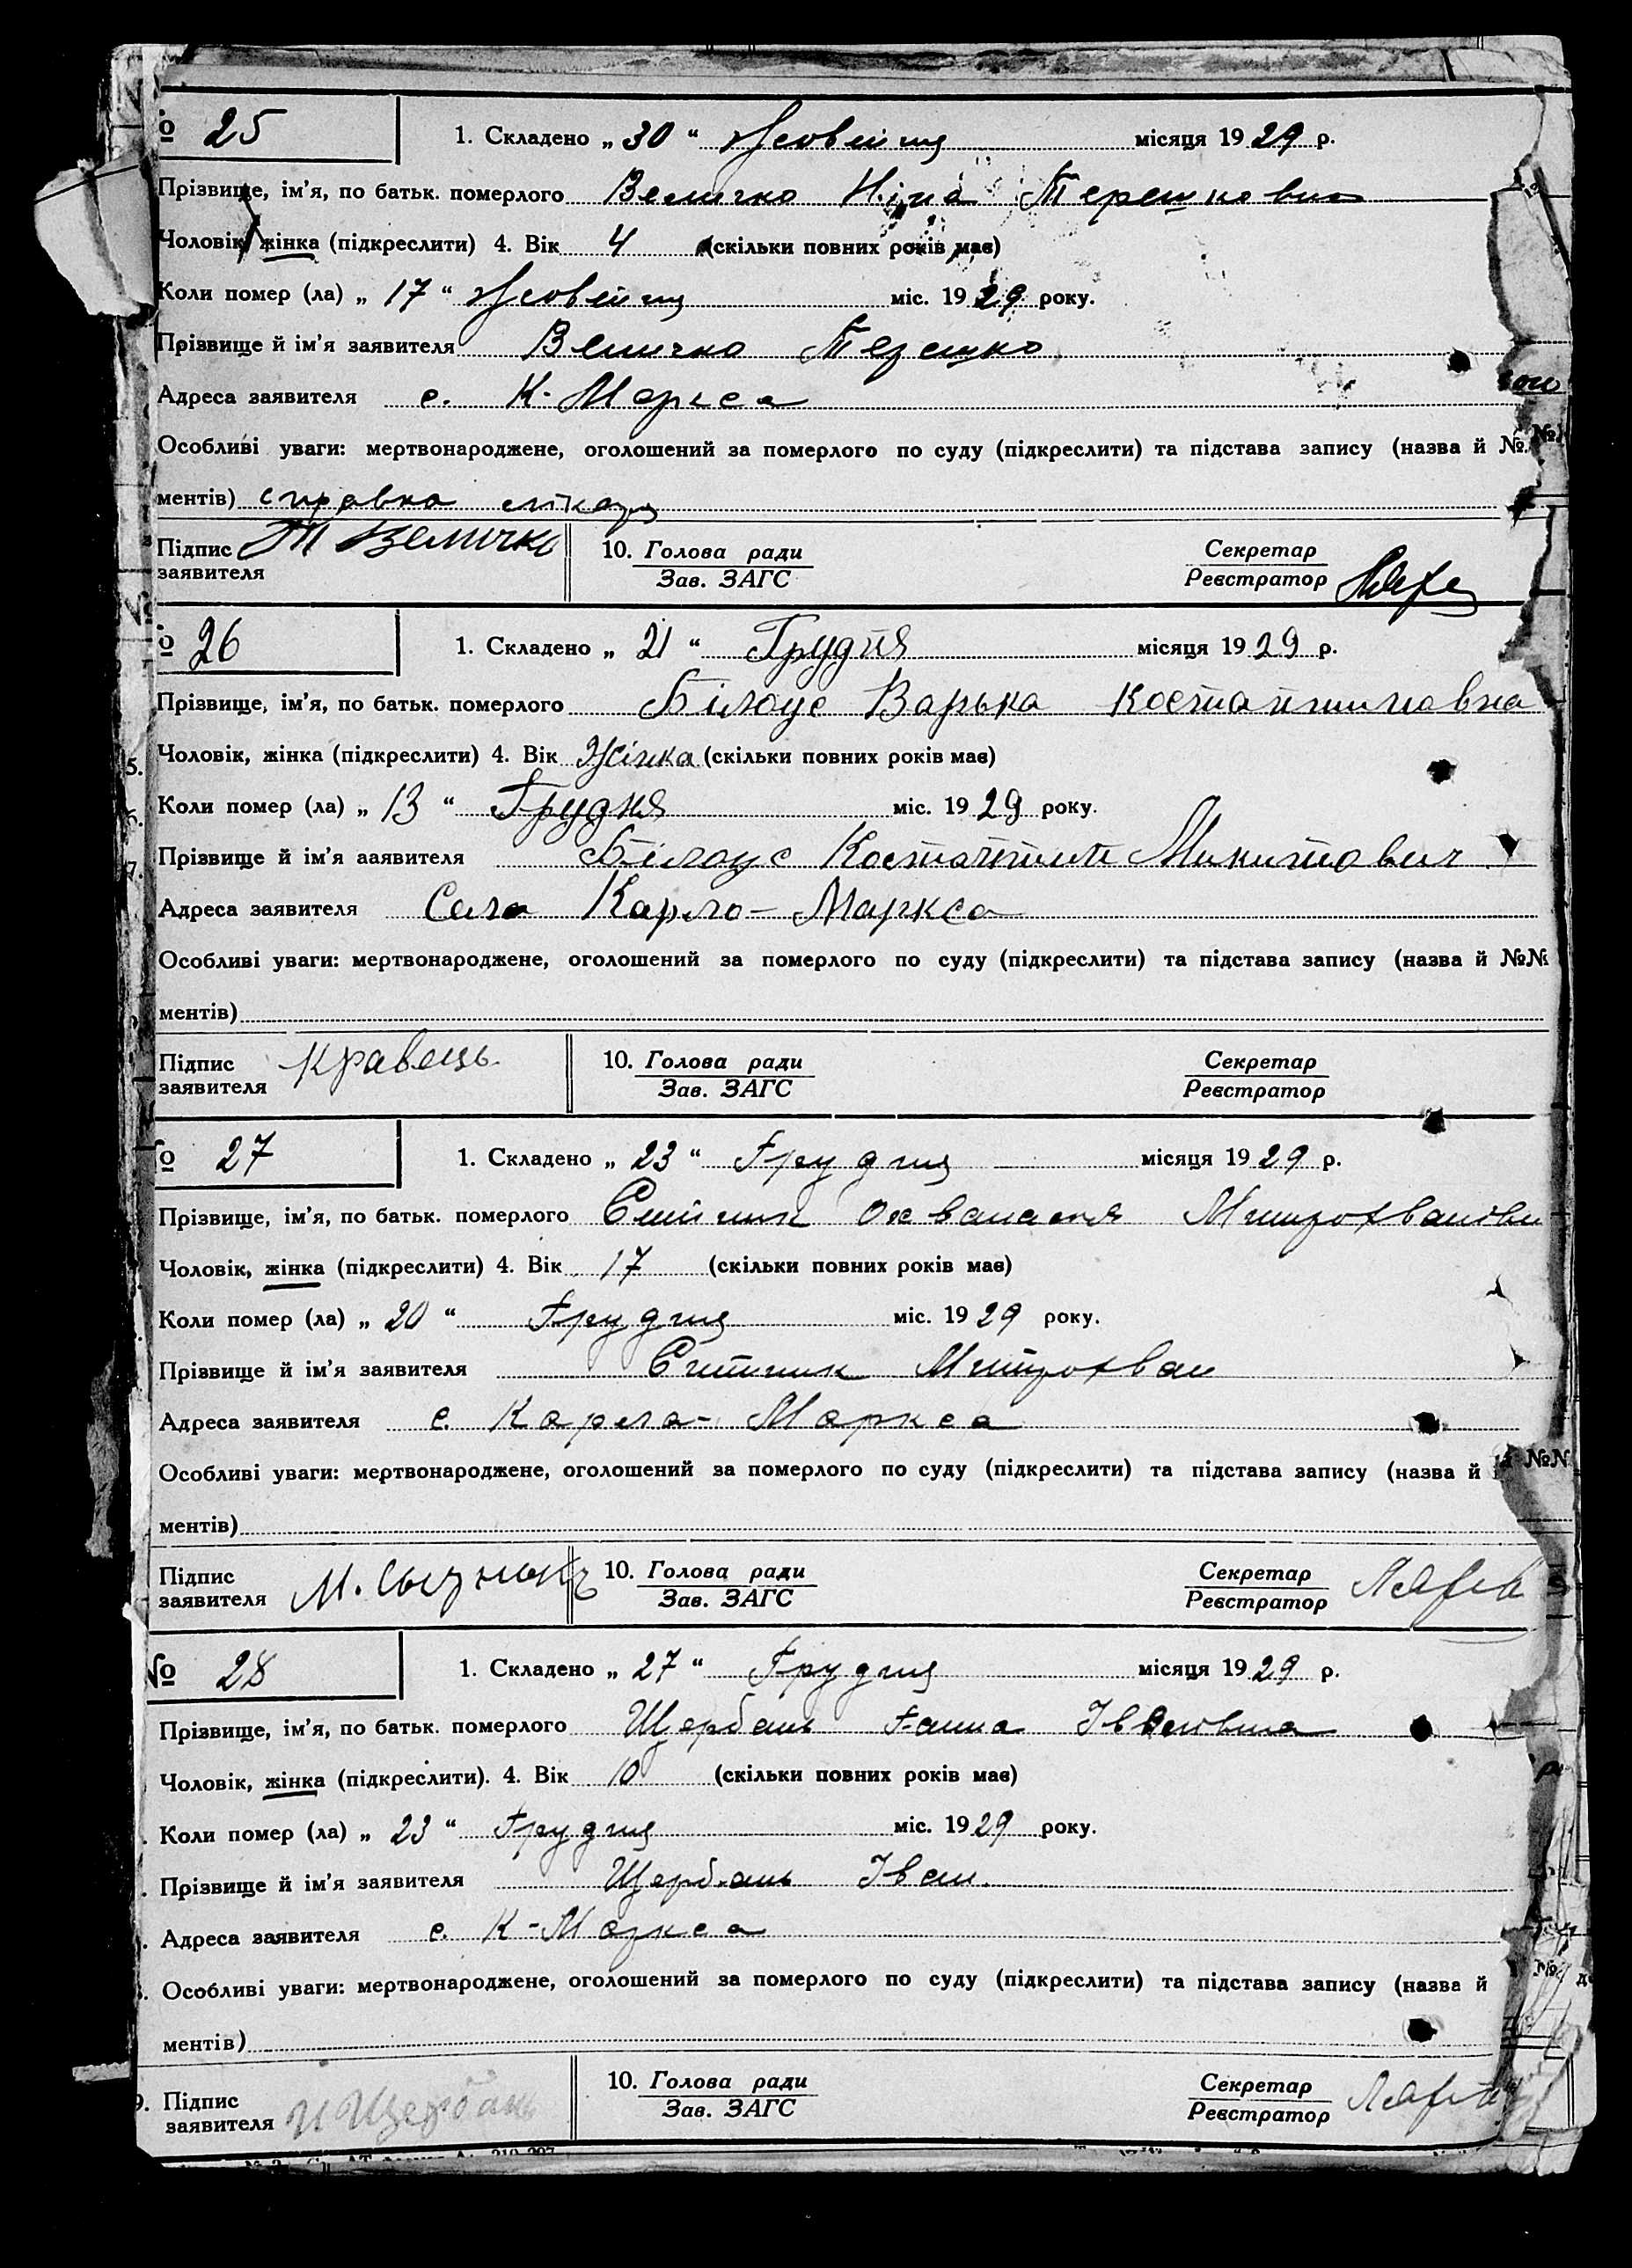 № 25
1. Складено „ 30 “ Жовтня місяця 1929 р.
Прізвище, ім’я, по батьк. померлого Величко Ніна Терешковна
Чоловік, жінка (підкреслити) 4. Вік 4 (скільки повних років має)
Коли помер (ла) „ 17 “ Жовтня міс. 1929 року.
Прізвище й ім’я заявителя Величко Терешко
Адреса заявителя с. К-Маркса
Особливі уваги: мертвонароджене, оголошений за померлого по суду (підкреслити) та підстава запису (назва й №№
ментів) справка лікаря
Підпис заявителя Т Величко
10. Голова ради
Зав. ЗАГС
Секретар
Реєстратор
№ 26
1. Складено „ 21 “ Грудня місяця 1929 р.
Прізвище, ім’я, по батьк. померлого Білоус Варька Костантиновна
Чоловік, жінка (підкреслити) 4. Вік Жінка (скільки повних років має)
Коли помер (ла) „ 13 “ Грудня міс. 1929 року.
Прізвище й ім’я аявителя Білоус Костантин Микитович
Адреса заявителя Село Карло-Маркса
Особливі уваги: мертвонароджене, оголошений за померлого по суду (підкреслити) та підстава запису (назва й №№
ментів)
Підпис заявителя Кравець
10. Голова ради
Зав. ЗАГС
Секретар
Реєстратор
№ 27
1. Складено „ 23 “ Грудня місяця 1929 р.
Прізвище, ім’я, по батьк. померлого Ситник Митрохванівн
Чоловік, жінка (підкреслити) 4. Вік 17 (скільки повних років має)
Коли помер (ла) „ 20 “ Грудня міс. 1929 року.
Прізвище й ім’я заявителя Ситник Митрохван
Адреса заявителя с. Карла-Маркса
Особливі уваги: мертвонароджене, оголошений за померлого по суду (підкреслити) та підстава запису (назва й №№
ментів)
Підпис заявителя М. Сытникъ
10. Голова ради
Зав. ЗАГС
Секретар
Реєстратор
№ 28
1. Складено „ 27 “ Грудня місяця 1929 р.
Прізвище, ім’я, по батьк. померлого Щербань Ганна Івановна
Чоловік, жінка (підкреслити). 4. Вік 10 (скільки повних років має)
Коли помер (ла) „ 23 “ Грудня міс. 1929 року.
Прізвище й ім’я заявителя Щербань Іван.
Адреса заявителя с. К-Маркса
Особливі уваги: мертвонароджене, оголошений за померлого по суду (підкреслити) та підстава запису (назва й
ментів)
9. Підпис заявителя И Щербань
10. Голова ради
Зав. ЗАГС
Секретар
Реєстратор